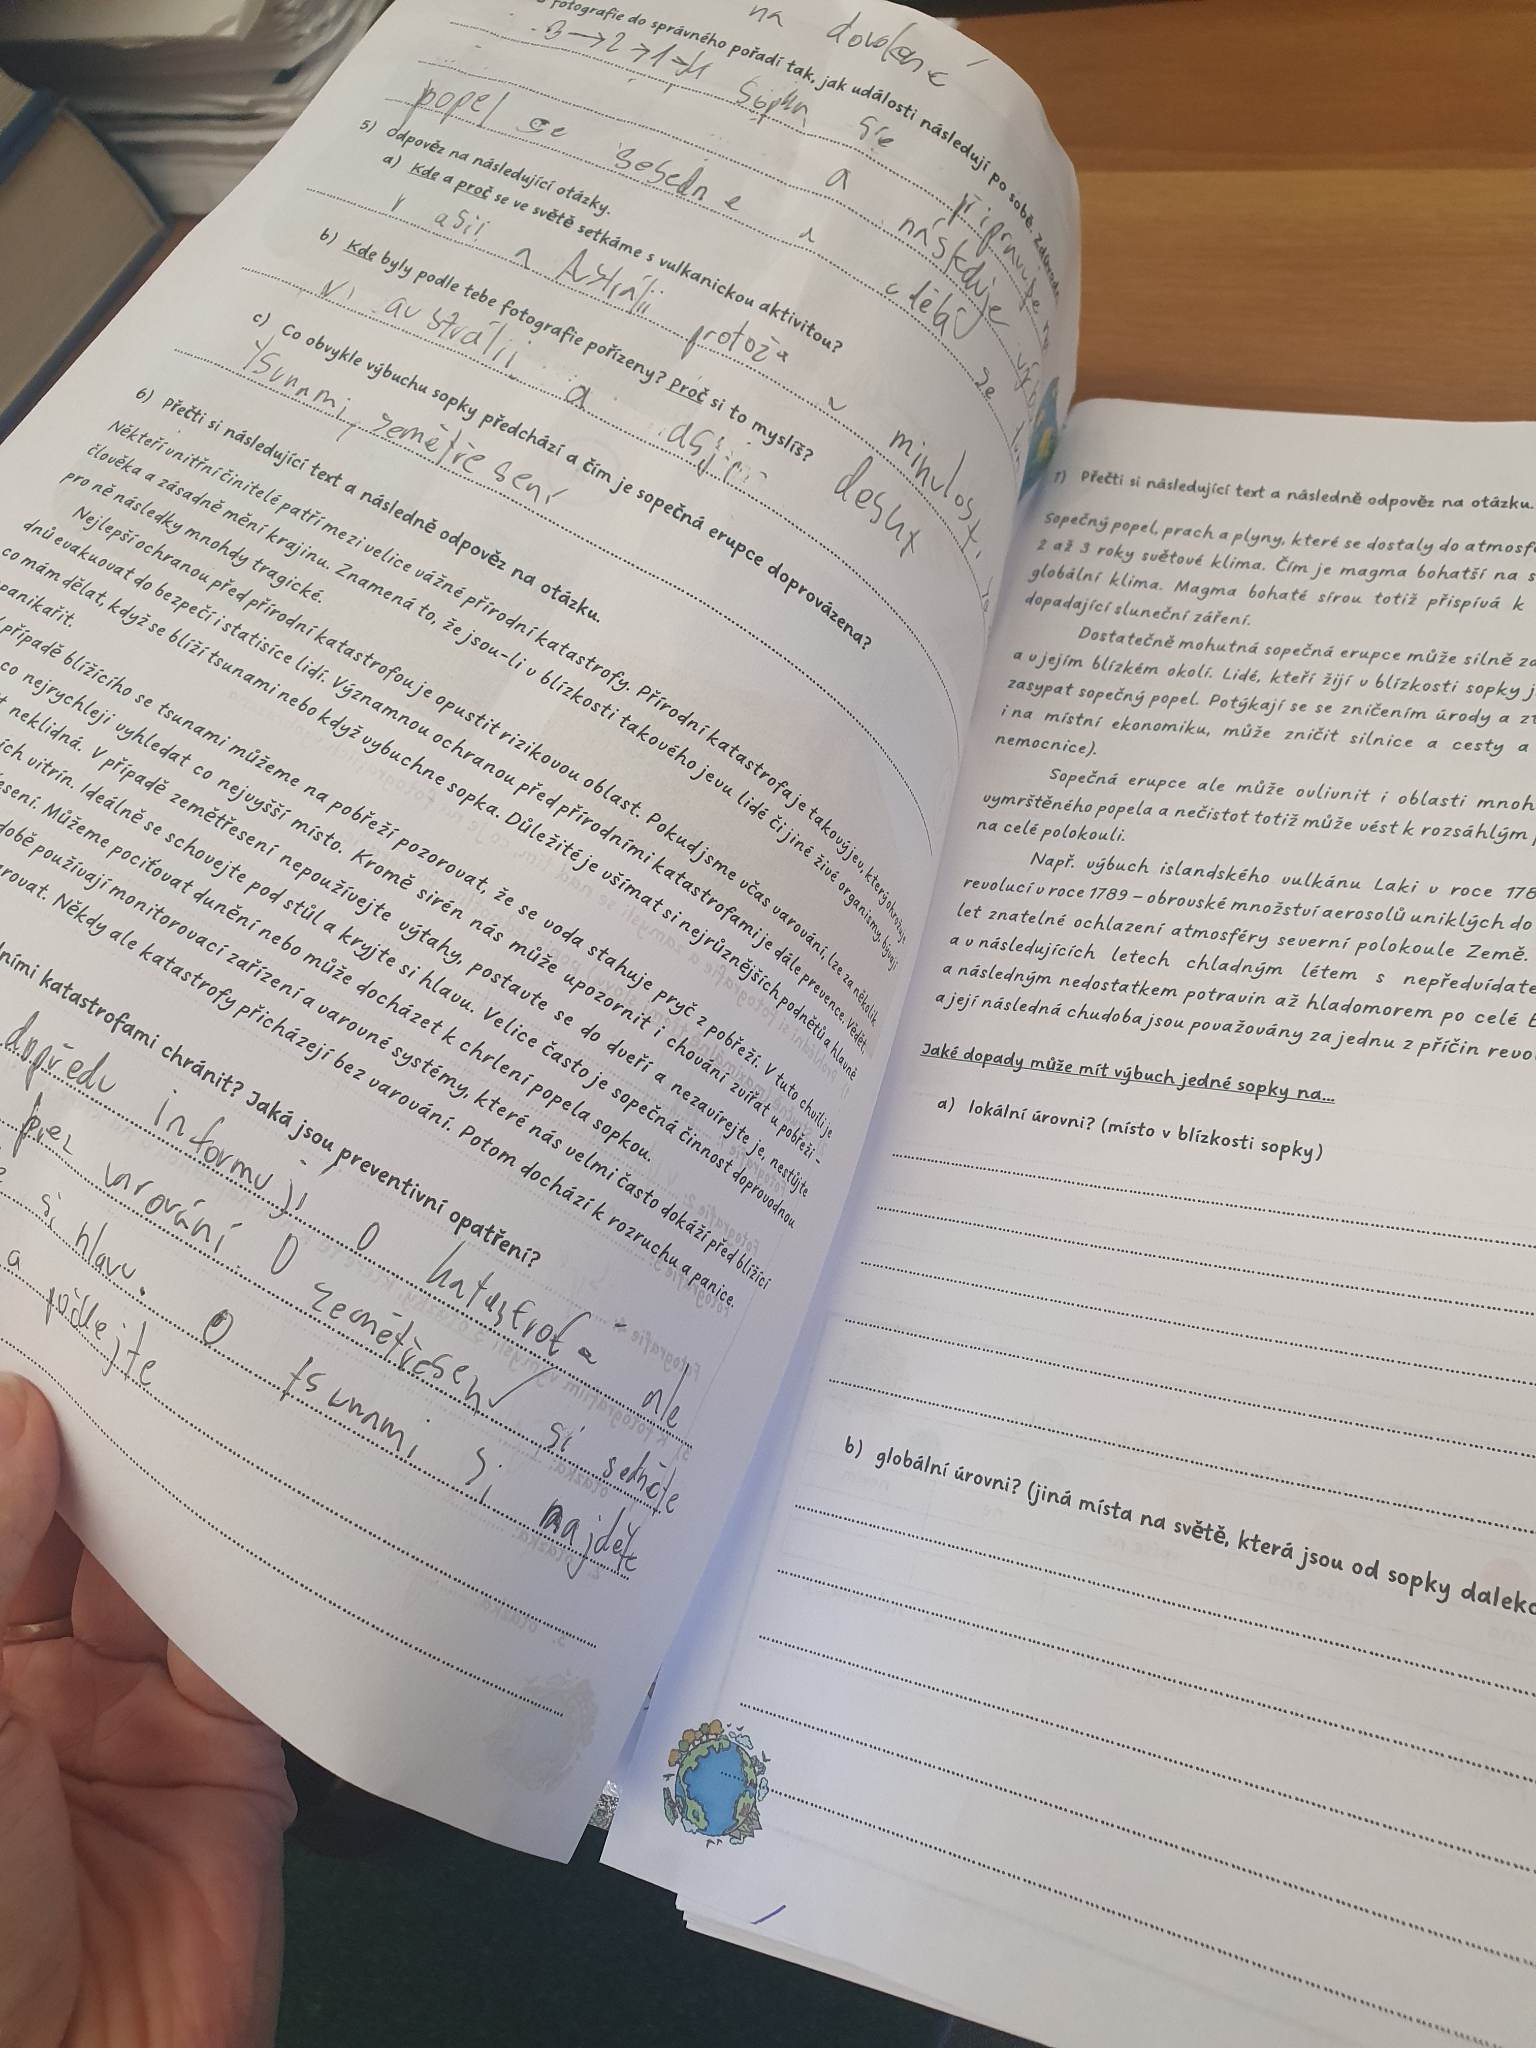 na dovolené
fotografie do správného pořadí tak, jak události následují po sobě. Zdůvodni.
3 → 2 → 1 → 4 Sopka se připravuje na
popel se sesedne a následuje
5) Odpověz na následující otázky.
a) Kde a proč se ve světě setkáme s vulkanickou aktivitou?
v asii a protože v minulosti
b) Kde byly podle tebe fotografie pořízeny? Proč si to myslíš?
v austrálii a asii
c) Co obvykle výbuchu sopky předchází a čím je sopečná erupce doprovázena?
tsunami, zemětřesení
6) Přečti si následující text a následně odpověz na otázku.
Někteří vnitřní činitelé patří mezi velice vážné přírodní katastrofy. Přírodní katastrofa je takový jev, který ohrožuje
člověka a zásadně mění krajinu. Znamená to, že jsou-li v blízkosti takového jevu lidé či jiné živé organismy, bývají
pro ně následky mnohdy tragické.
Nejlepší ochranou před přírodní katastrofou je opustit rizikovou oblast. Pokud jsme včas varováni, lze za několik
dnů evakuovat do bezpečí i statisíce lidí. Významnou ochranou před přírodními katastrofami je dále prevence. Vědět,
co mám dělat, když se blíží tsunami nebo když vybuchne sopka. Důležité je všímat si nejrůznějších podnětů a hlavně
panikařit.
případě blížícího se tsunami můžeme na pobřeží pozorovat, že se voda stahuje pryč z pobřeží. V tuto chvíli je
co nejrychleji vyhledat co nejvyšší místo. Kromě sirén nás může upozornit i chování zvířat u pobřeží –
neklidná. V případě zemětřesení nepoužívejte výtahy, postavte se do dveří a nezavírejte je, nestůjte
vitrín. Ideálně se schovejte pod stůl a kryjte si hlavu. Velice často je sopečná činnost doprovodnou
Můžeme pociťovat dunění nebo může docházet k chrlení popela sopkou.
době používají monitorovací zařízení a varovné systémy, které nás velmi často dokáží před blížící
varovat. Někdy ale katastrofy přicházejí bez varování. Potom dochází k rozruchu a panice.
katastrofami chránit? Jaká jsou preventivní opatření?
dopředu informují o katastrofě ale
bez varování O zemětřesení si sedněte
si hlavu. O tsunami si najděte
a počkejte
7) Přečti si následující text a následně odpověz na otázku.
Sopečný popel, prach a plyny, které se dostaly do
2 až 3 roky světové klima. Čím je magma bohatší na
globální klima. Magma bohaté sírou totiž přispívá k
dopadající sluneční záření.
Dostatečně mohutná sopečná erupce může silně
a v jejím blízkém okolí. Lidé, kteří žijí v blízkosti sopky
zasypat sopečný popel. Potýkají se se zničením úrody a
i na místní ekonomiku, může zničit silnice a cesty a
nemocnice).
Sopečná erupce ale může ovlivnit i oblasti
vymrštěného popela a nečistot totiž může vést k rozsáhlým
na celé polokouli.
Např. výbuch islandského vulkánu Laki v roce
revolucí v roce 1789 – obrovské množství aerosolů uniklých do
let znatelné ochlazení atmosféry severní polokoule Země.
a v následujících letech chladným létem s
a následným nedostatkem potravin až hladomorem po celé
a její následná chudoba jsou považovány za jednu z příčin
Jaké dopady může mít výbuch jedné sopky na...
a) lokální úrovni? (místo v blízkosti sopky)
b) globální úrovni? (jiná místa na světě, která jsou od sopky